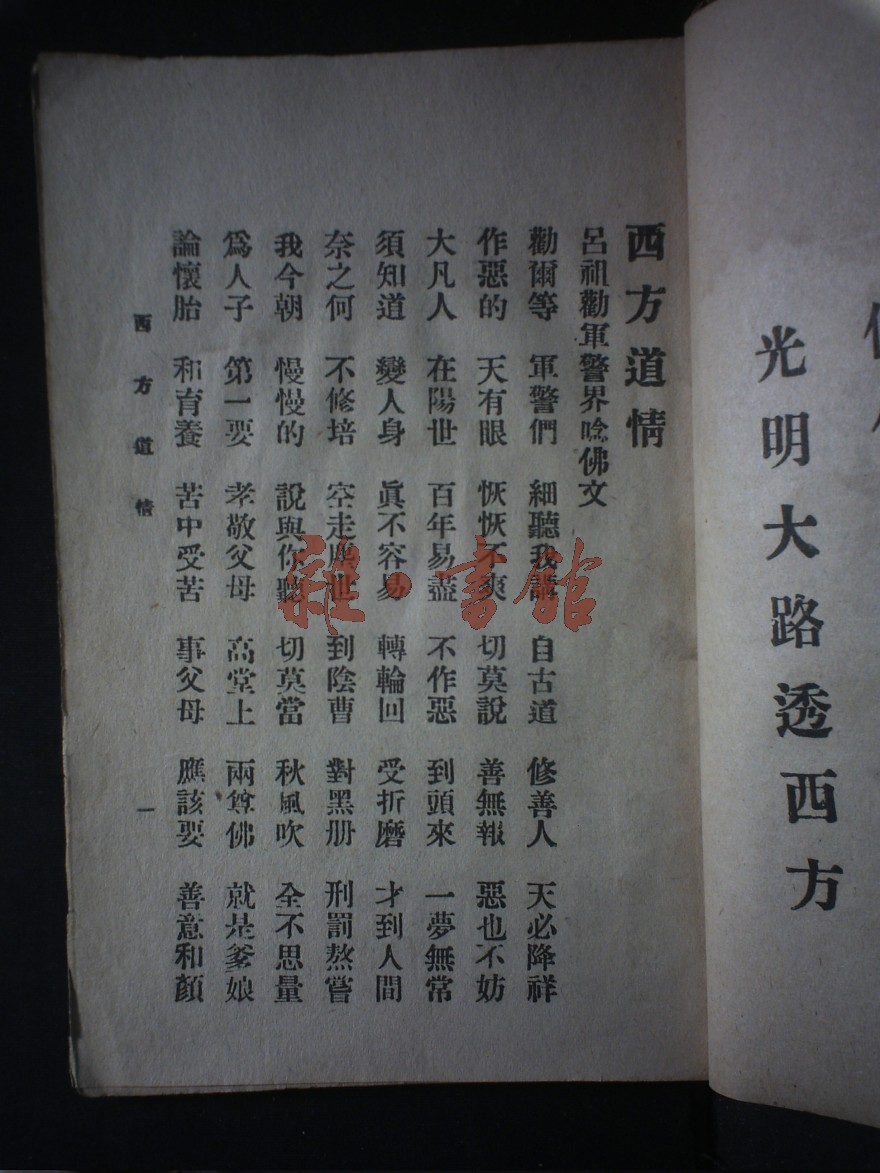 光明大路透西方
西方道情
呂祖勸軍警界唸佛文
勸爾等 軍警們 細聽我講 自古道 修善人 天必降祥
作惡的 天有眼 恢恢不爽 切莫說 善無報 惡也不妨
大凡人 在陽世 百年易盡 不作惡 到頭來 一夢無常
須知道 變人身 眞不容易 轉輪回 受折磨 才到人間
奈之何 不修培 空走塵世 到陰曹 對黑册 刑罰熬嘗
我今朝 慢慢的 說與你聽 切莫當 秋風吹 全不思量
爲人子 第一要 孝敬父母 高堂上 兩尊佛 就是爹娘
論懷胎 和育養 苦中受苦 事父母 應該要 善意和顏
西方道情 一
雜·書館